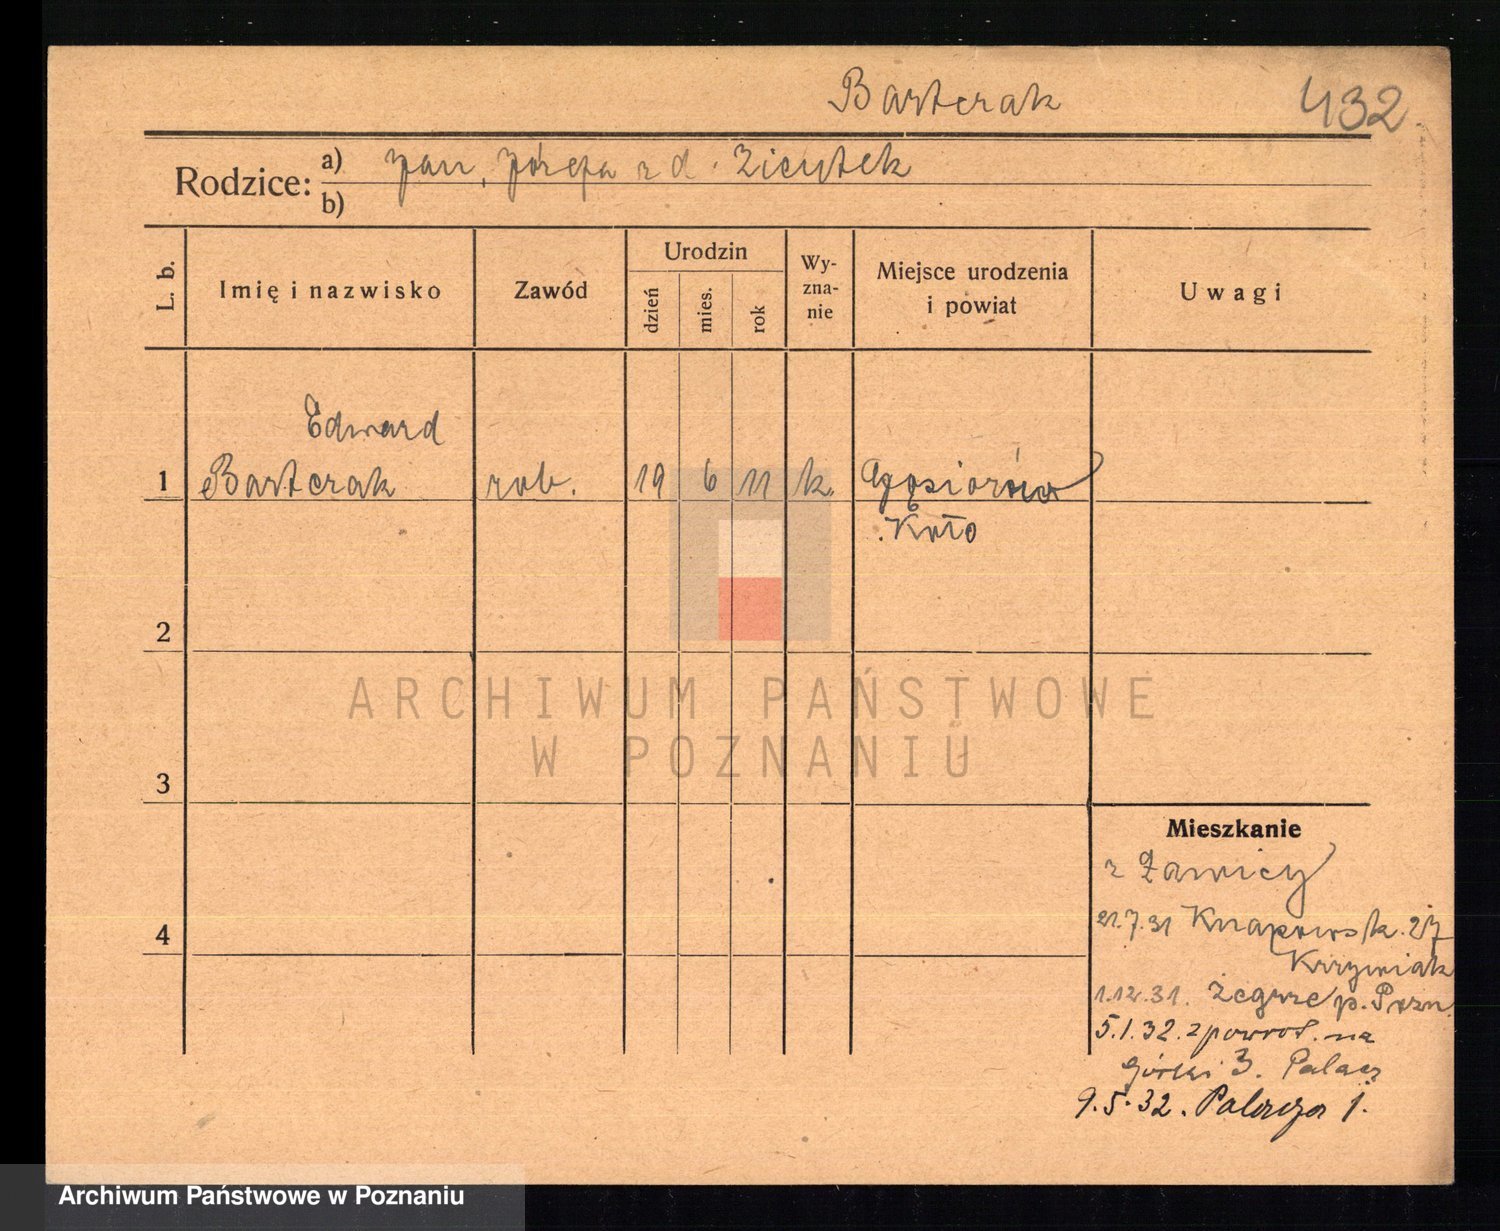 Bartczak 432
Rodzice: a) Jan, Józefa z d. Zientek
b)
L. b. Imię i nazwisko Zawód Urodzin dzień mies. rok Wyznanie Miejsce urodzenia i powiat Uwagi
Edward
1 Bartczak rob. 19 6 11 k.
Koło
2
ARCHIWUM PAŃSTWOWE
W POZNANIU
3
Mieszkanie
z Ławicy
21.7.31 Knapowsk. 27
4
Krzywiak
1.12.31. Żegrze p. Pozn.
5.1.32. z powrot. na
Górki 3. Palacz
9.5.32. Palacza 1.
Archiwum Państwowe w Poznaniu